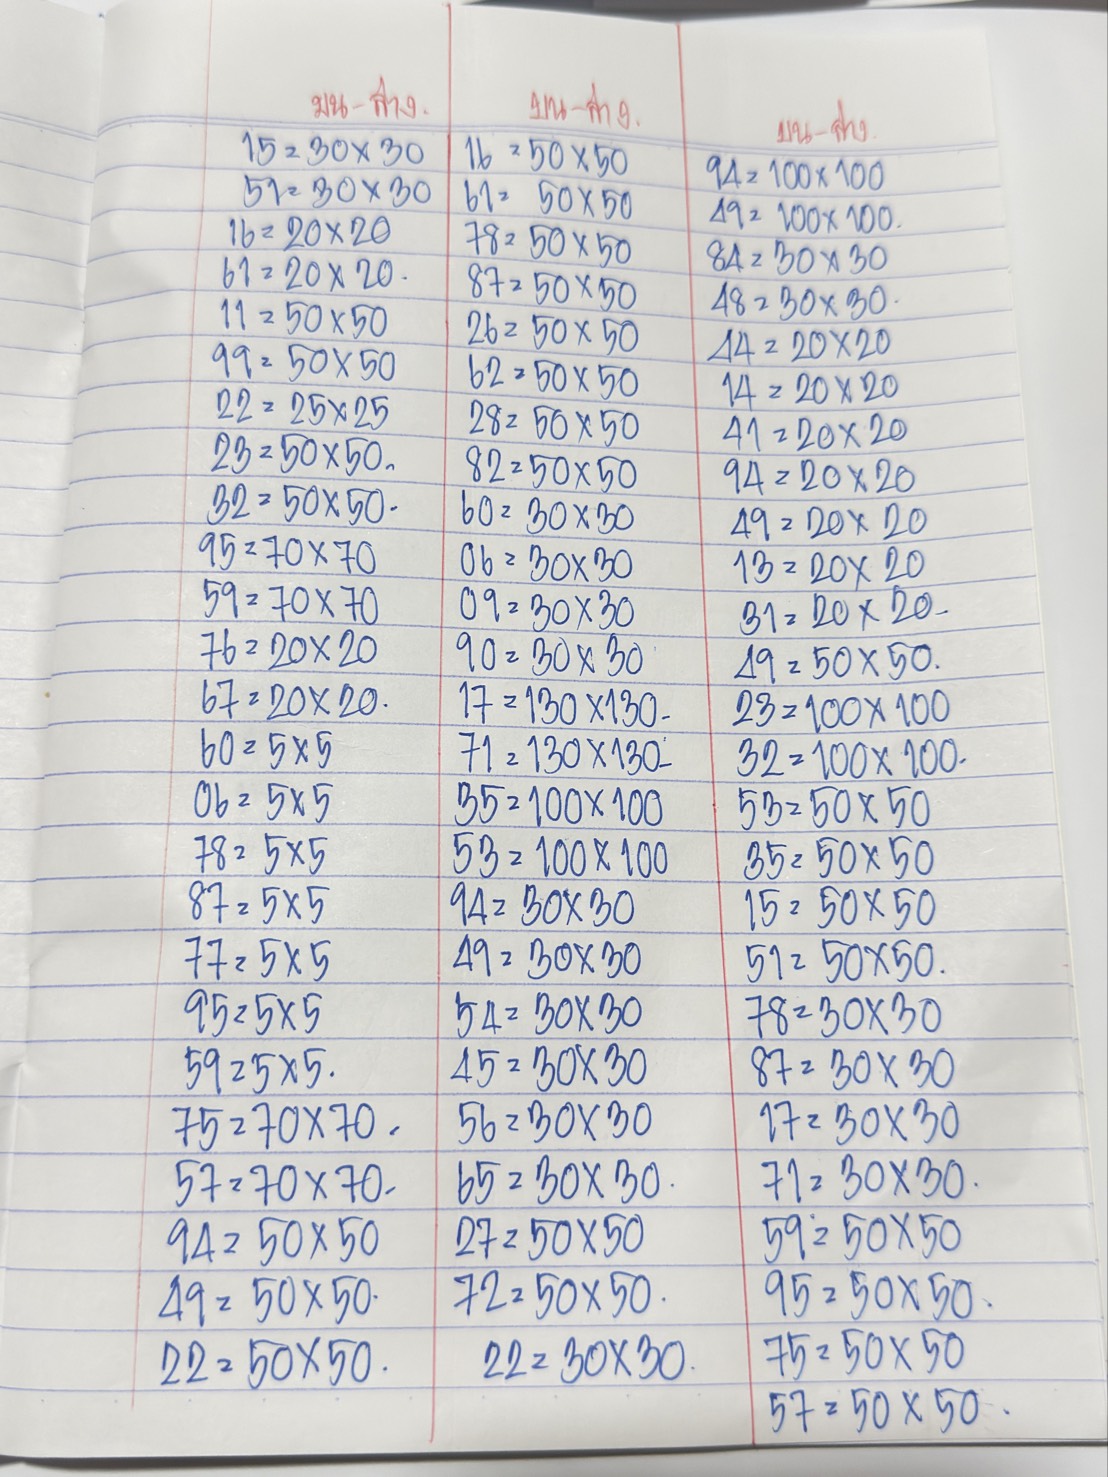 บน-ล่าง.
15=30×30
51=30×30
16=20×20
61=20×20.
11=50×50
99=50×50
22=25×25
23=50×50.
32=50×50-
95=70×70
59=70×70
76=20×20
67=20×20.
60=5×5
06=5×5
78=5×5
87=5×5
77=5×5
95=5×5
59=5×5.
75=70×70.
57=70×70-
94=50×50
49=50×50.
22=50×50.
บน-ล่าง.
16=50×50
61=50×50
78=50×50
87=50×50
26=50×50
62=50×50
28=50×50
82=50×50
60=30×30
06=30×30
09=30×30
90=30×30
17=130×130-
71=130×130-
35=100×100
53=100×100
94=30×30
49=30×30
54=30×30
45=30×30
56=30×30
65=30×30.
27=50×50
72=50×50.
22=30×30.
บน-ล่าง.
94=100×100
49=100×100.
84=30×30
48=30×30.
44=20×20
14=20×20
41=20×20
94=20×20
49=20×20
13=20×20
31=20×20-
49=50×50.
23=100×100
32=100×100.
53=50×50
35=50×50
15=50×50
51=50×50.
78=30×30
87=30×30
17=30×30
71=30×30.
59=50×50
95=50×50.
75=50×50
57=50×50.